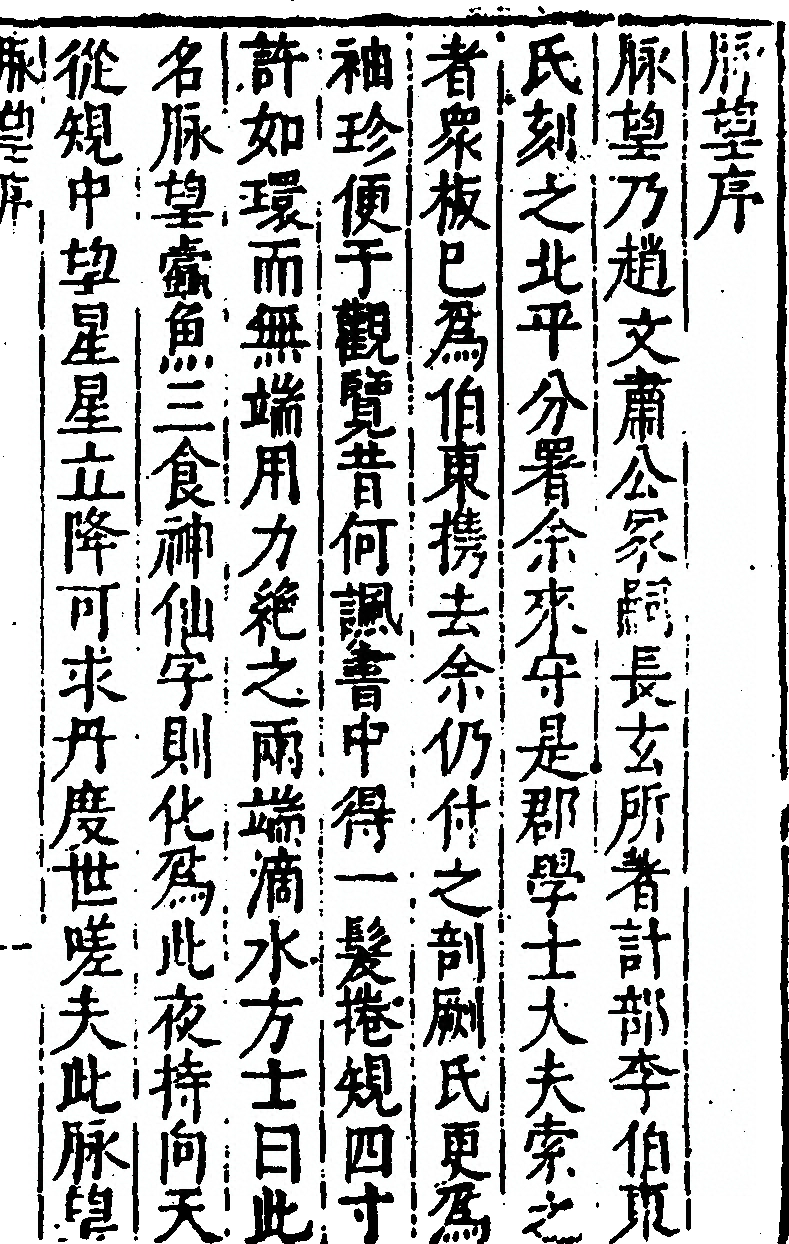 脉望序
脉望乃趙文肅公冢嗣長玄所著計部李伯東
氏刻之北平分署余來守是郡學士大夫索之
者衆板已爲伯東携去余仍付之剖劂氏更爲
袖珍便于觀覽昔何諷書中得一髮捲規四寸
許如環而無端用力絶之兩端滴水方士曰此
名脉望蠹魚三食神仙字則化爲此夜持向天
從規中望星星立降可求丹度世嗟夫此脉望
脉望序